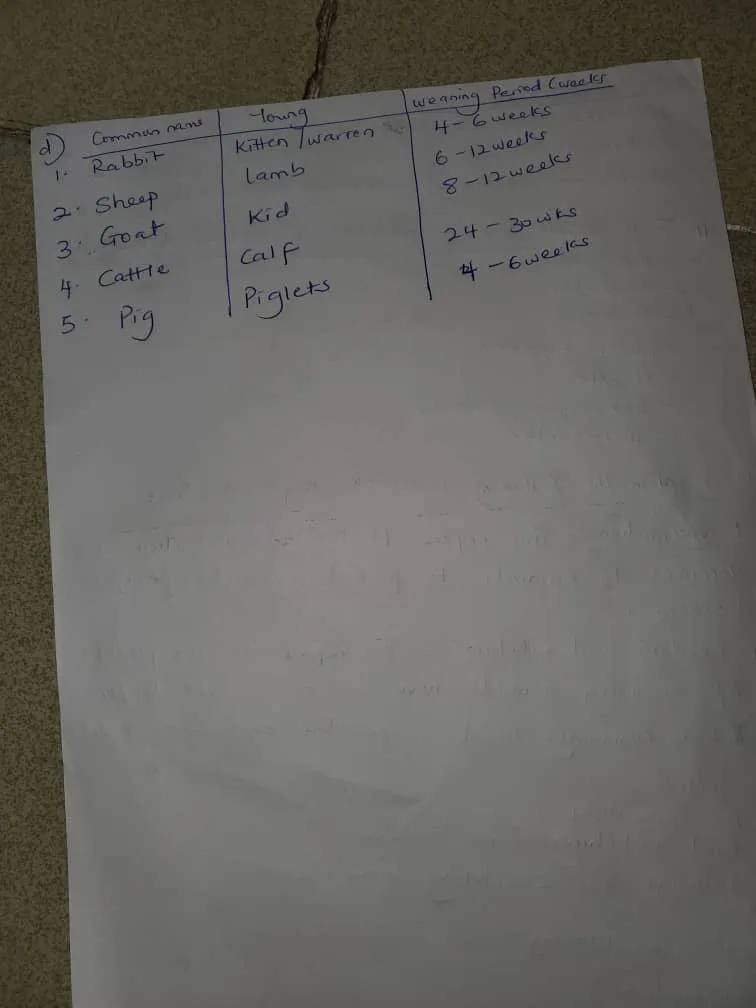 d) Common name Young Weaning Period (weeks
1. Rabbit Kitten / warren 4 - 6 weeks
2. Sheep lamb 6 - 12 weeks
3. Goat Kid 8 - 12 weeks
4. Cattle Calf 24 - 30 wks
5. Pig Piglets 4 - 6 weeks